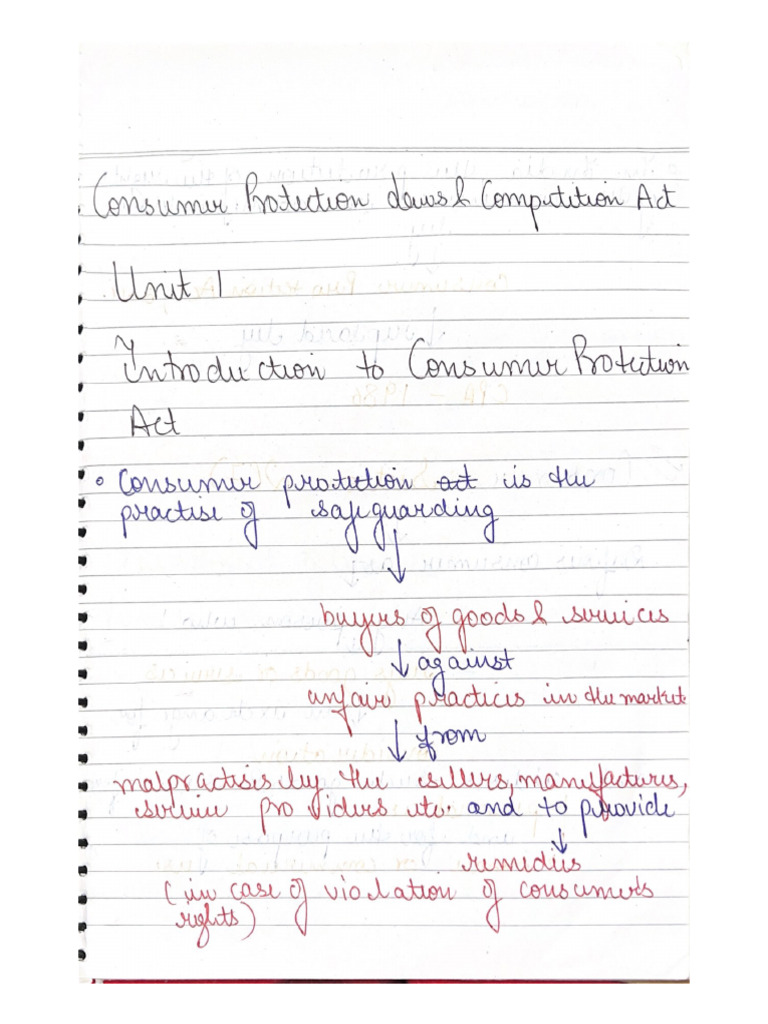 Consumer Protection Laws & Competition Act
Unit 1
Introduction to Consumer Protection
Act
° Consumer protection act is the
practise of safeguarding
↓
buyers of goods & services
↓ against
unfair practices in the market
↓ from
malpractises by the sellers, manufactures,
service providers etc. and to provide
↓
remedies
(in case of violation of consumer's
rights)